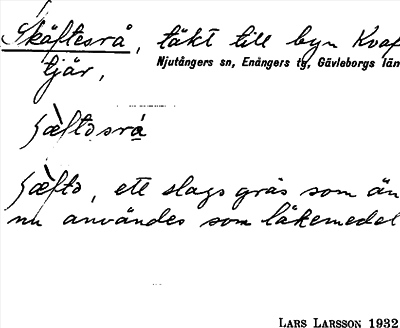 Skäftesrå, täkt till byn Kvaf
tjär,
Njutångers sn, Enångers tg, Gävleborgs län
sæ̀ftɔsrá
sæ̀ftɔ, ett slags gräs som än
nu användes som läkemedel
LARS LARSSON 1932